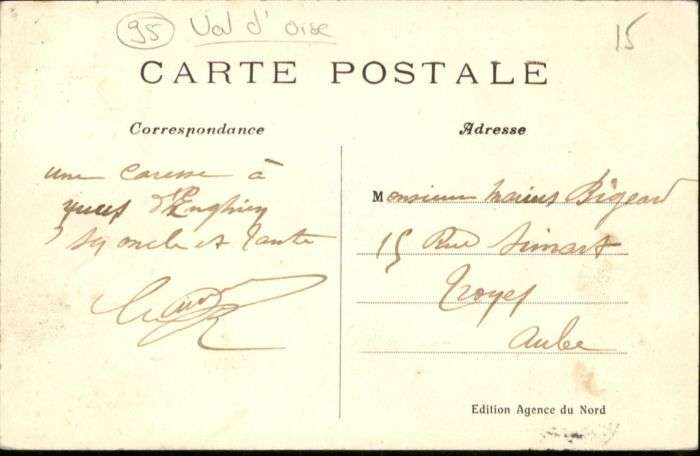 95 Val d'oise
15
CARTE POSTALE
Correspondance
Adresse
une caresse à
d'Enghien
oncle et tante
Monsieur Marius Bigeard
15 Rue Simart
Troyes
Aube
Edition Agence du Nord